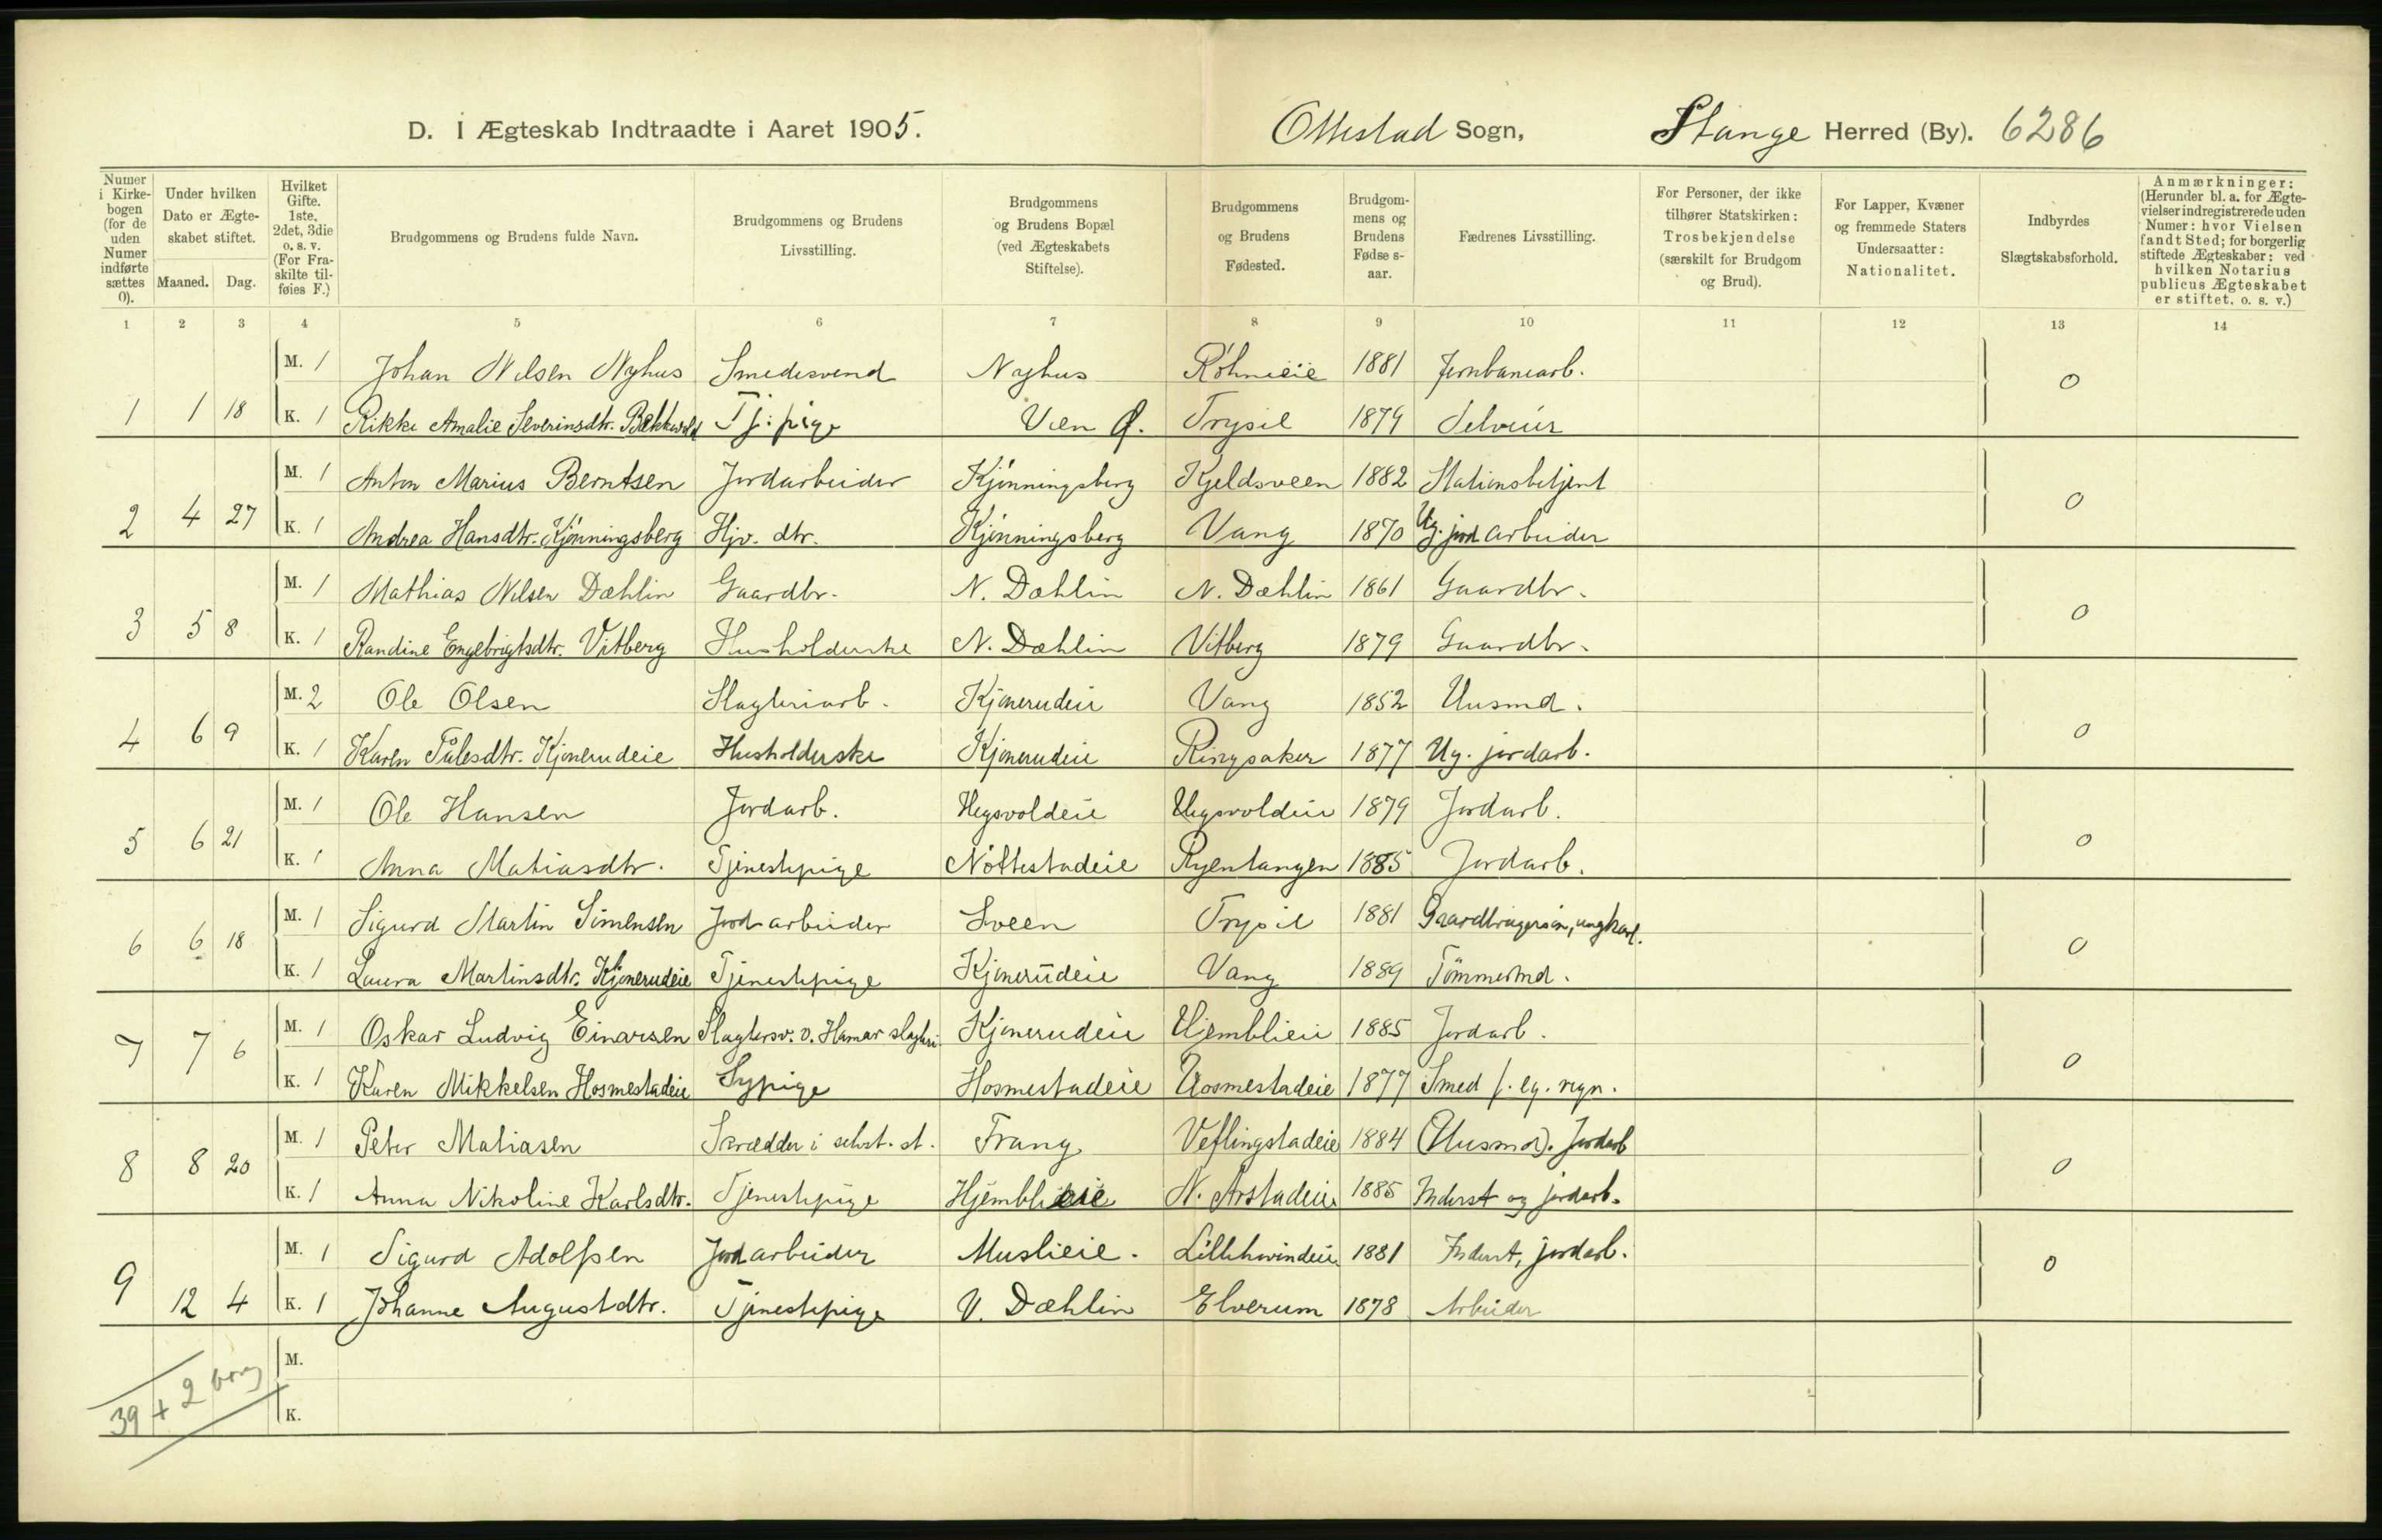 D. I Ægteskab Indtraadte i Aaret 1905. Ottestad Sogn, Stange Herred (By). 6286
Numer i Kirkebogen (for de uden Numer indførte sættes 0).
Under hvilken Dato er Ægteskabet stiftet.
Maaned. Dag.
Hvilket Gifte. 1ste, 2det, 3die o. s. v. (For Fraskilte tilføies F.)
Brudgommens og Brudens fulde Navn.
Brudgommens og Brudens Livsstilling.
Brudgommens og Brudens Bopæl (ved Ægteskabets Stiftelse).
Brudgommens og Brudens Fødested.
Brudgommens og Brudens Fødse s-aar.
Fædrenes Livsstilling.
For Personer, der ikke tilhører Statskirken: Trosbekjendelse (særskilt for Brudgom og Brud).
For Lapper, Kvæner og fremmede Staters Undersaatter: Nationalitet.
Indbyrdes Slægtskabsforhold.
Anmærkninger: (Herunder bl. a. for Ægtevielser indregistrerede uden Numer: hvor Vielsen fandt Sted; for borgerlig stiftede Ægteskaber: ved hvilken Notarius publicus Ægteskabet er stiftet. o. s. v.)
1 2 3 4 5 6 7 8 9 10 11 12 13 14
M. 1 Johan Nilsen Nyhus Smedesvend Nyhus Röhneeie 1881 Jernbanearb.
1 1 18 K. 1 Rikke Amalie Severinsdtr. Bækkevold Tj. pige Vien Ø. Trysil 1879 Selveier 0
M. 1 Anton Marius Berntsen Jordarbeider Kjönningsberg Kjeldsveen 1882 Stationsbetjent
2 4 27 K. 1 Andrea Hansdtr. Kjönningsberg Hjv. dtr. Kjönningsberg Vang 1870 Ug. jord arbeider 0
M. 1 Mathias Nilsen Dæhlin Gaardbr. N. Dæhlin N. Dæhlin 1861 Gaardbr.
3 5 8 K. 1 Randine Engebrigtsdtr. Vitberg Husholderske N. Dæhlin Vitberg 1879 Gaardbr. 0
M. 2 Ole Olsen Slagteriarb. Kjonerudeie Vang 1852 Husmd.
4 6 9 K. 1 Karen Pålesdtr. Kjonerudeie Husholderske Kjonerudeie Ringsaker 1877 Ug. jordarb. 0
M. 1 Ole Hansen Jordarb. Hegsvoldeie Hegsvoldeie 1879 Jordarb.
5 6 21 K. 1 Anna Matiasdtr. Tjenestepige Nöttestadeie Ryentangen 1885 Jordarb. 0
M. 1 Sigurd Martin Simensen Jordarbeider Sveen Trysil 1881 Gaardbrugersön, ungkarl.
6 6 18 K. 1 Laura Martinsdtr. Kjonerudeie Tjenestepige Kjonerudeie Vang 1889 Tömmermd. 0
M. 1 Oskar Ludvig Einarsen Slagtersv. v. Hamar slagteri Kjonerudeie Hjemblieie 1885 Jordarb.
7 7 6 K. 1 Karen Mikkelsen Hosmestadeie Sypige Hosmestadeie Hosmestadeie 1877 Smed f. eg. regn. 0
M. 1 Peter Matiasen Skrædder i selvst. st. Frang Veflingstadeie 1884 (Husmd). Jordarb
8 8 20 K. 1 Anna Nikoline Karlsdtr. Tjenestepige Hjemblieie N. Arstadeie 1885 Inderst og jordarb. 0
M. 1 Sigurd Adolfsen Jordarbeider Muslieie. Lillehvindeie 1881 Inderst, jordarb.
9 12 4 K. 1 Johanne Augustdtr. Tjenestepige V. Dæhlin Elverum 1878 Arbeider 0
M.
39 + 2 borg
K.